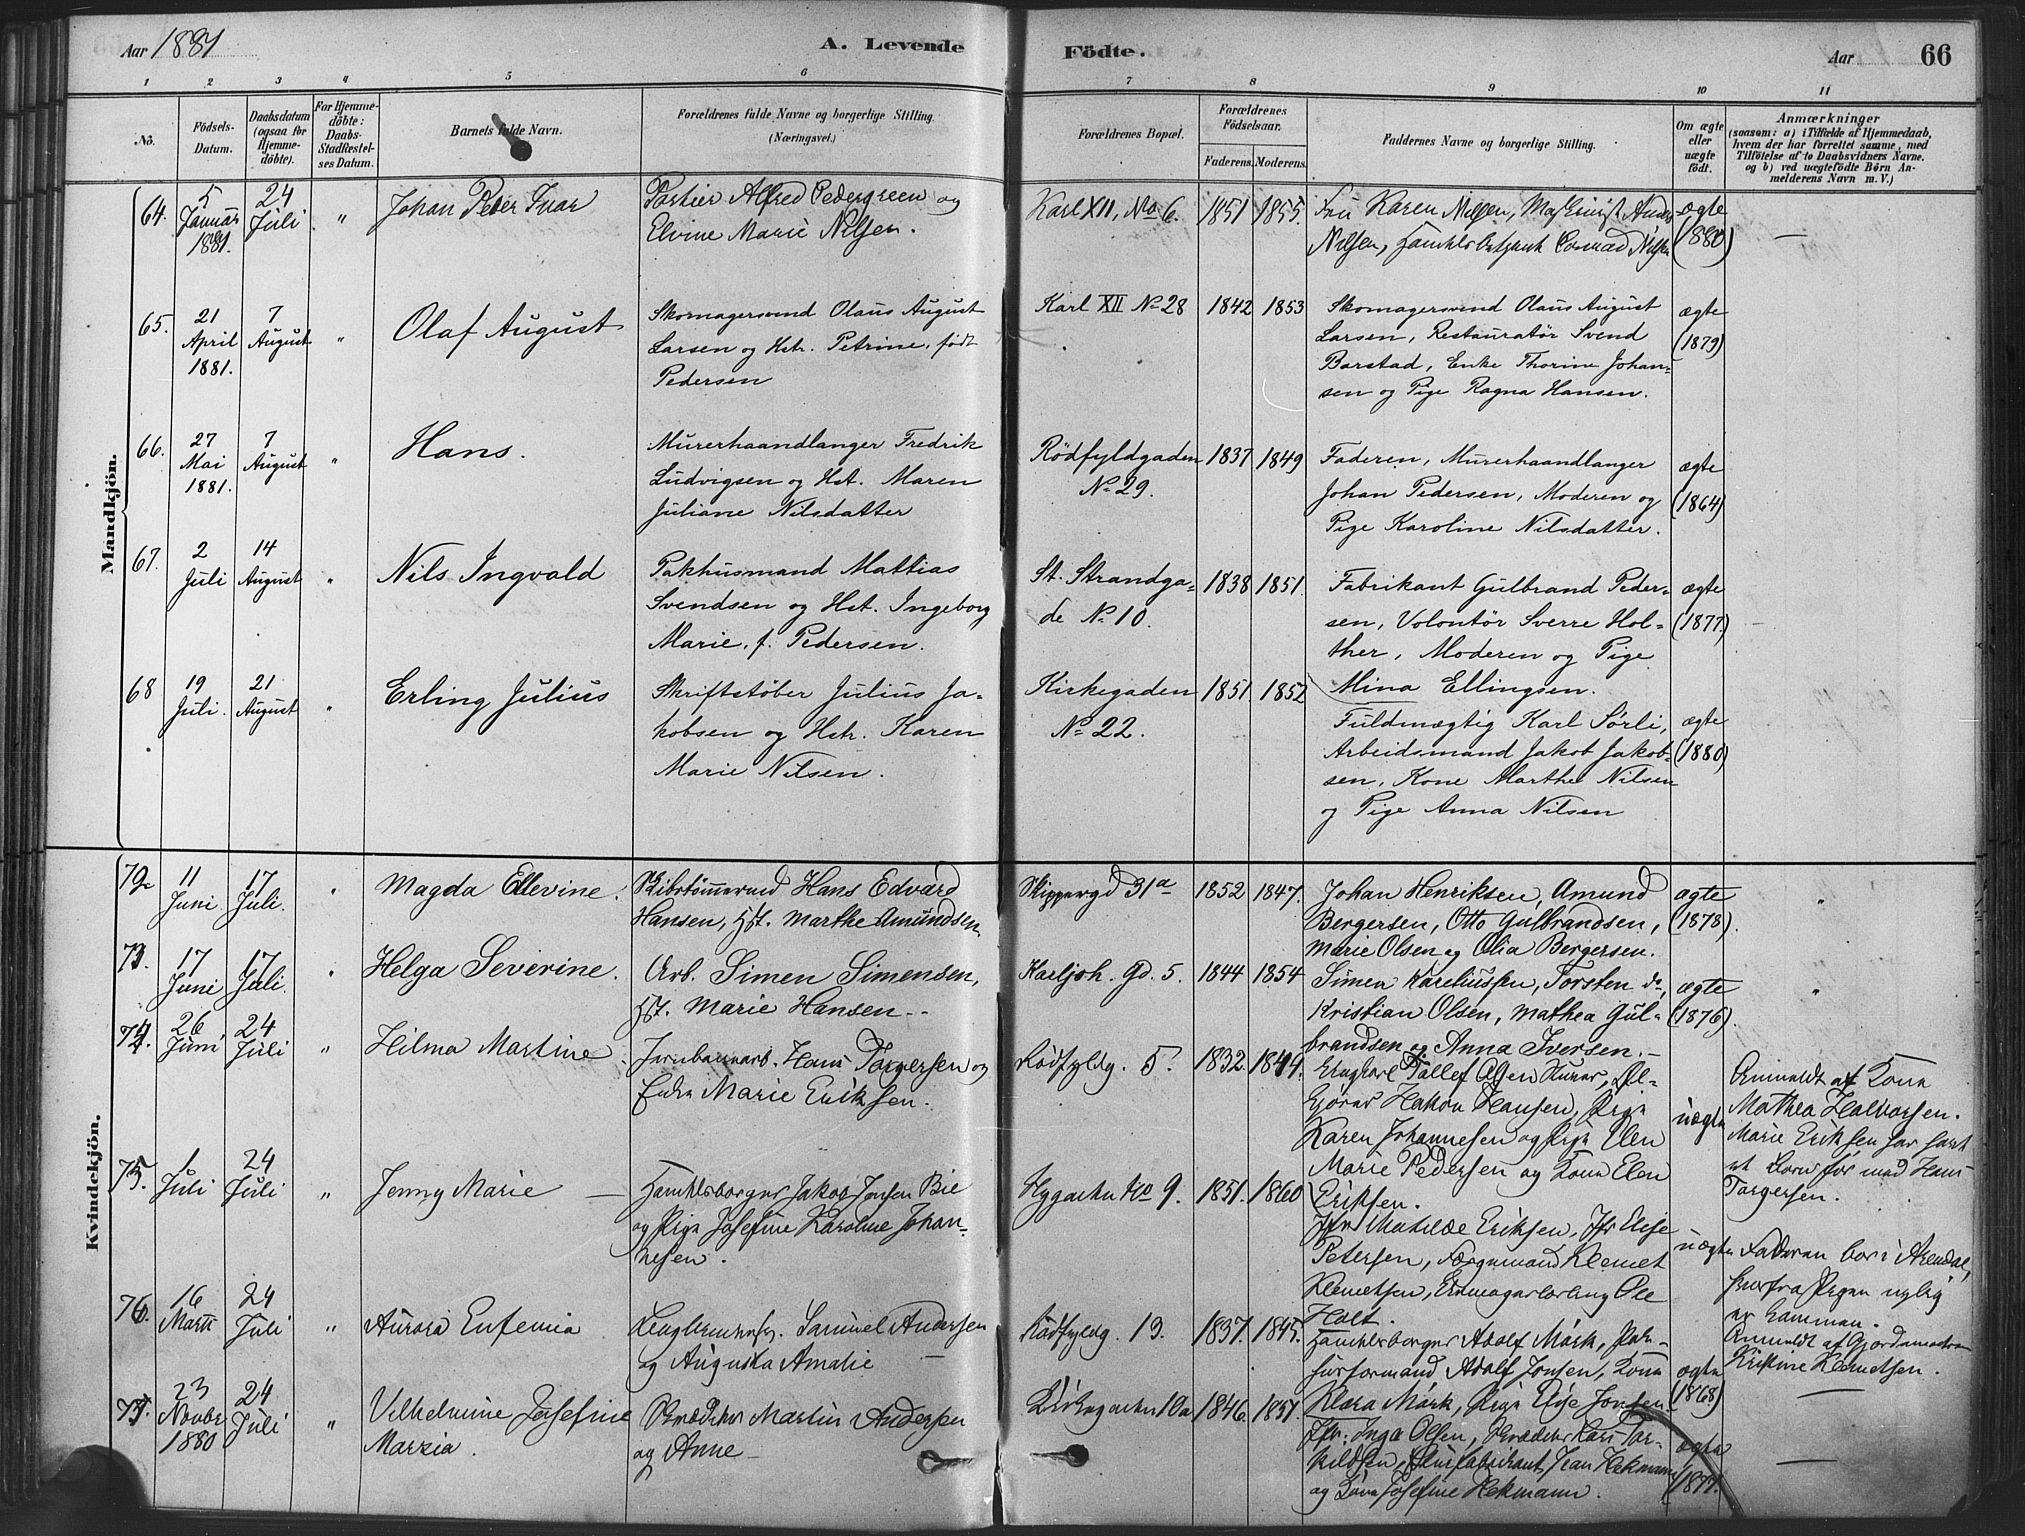 Aar 1881
A. Levende
Födte.
Aar
66
1 2 3 4 5 6 7 8 9 10 11
No.
Födsels-
Datum.
Daabsdatum
(ogsaa for
Hjemme-
döbte).
For Hjemme-
döbte:
Daabs-
Stadfæstel-
ses Datum.
Barnets fulde Navn.
Forældrenes fulde Navne og borgerlige Stilling.
(Næringsvei.)
Forældrenes Bopæl.
Forældrenes
Födselsaar.
Faderens. Moderens.
Faddernes Navne og borgerlige Stilling.
Om ægte
eller
uægte
födt.
Anmærkninger
(saasom: a) i Tilfælde af Hjemmedaab,
hvem der har forrettet samme, med
Tilföielse af to Daabsvidners Navne.
og b) ved uægtefödte Börn An-
melderens Navn m. V.)
Mandkjön.
64.
5
Januar
1881.
24
Juli
"
Johan Peter Ivar
Portier Alfred Pedergreen og
Elvine Marie Nilsen.
Karl XII, No 6.
1851
1855.
Fru Karen Nilsen, Maskinist
Nilsen, Conrad
ægte
(1880)
—
65.
21
April
1881.
7
August
"
Olaf August
Skomagersvend Olaus August
Larsen og Hstr. Petrine, født
Pedersen
Karl XII No 28
1842
1853
Skomagersvend Olaus August
Larsen, Restauratør Svend
Barstad, Enke Thorine Johan-
sen og Pige Ragna Hansen.
ægte
(1879)
66.
27
Mai
1881.
7
August
"
Hans.
Murerhaandlanger Fredrik
Ludvigsen og Hst. Maren
Juliane Nilsdatter
Rödfyldgaden
No 29.
1837
1849
Faderen, Murerhaandlanger
Johan Pedersen, Moderen og
Pige Karoline Nilsdatter.
ægte
(1864)
67.
2
Juli
14
August
"
Nils Ingvald
Pakhusmand Mattias
Svendsen og Hst. Ingeborg
Marie, f. Pedersen.
St. Strandga-
de No 10.
1838
1851.
Fabrikant Gulbrand Peder-
sen, Volontør Sverre Hol-
ther, Moderen og Pige
Mina Ellingsen.
ægte
(1877)
68
19
Juli.
21
August
"
Erling Julius
Skriftstøber Julius Ja-
kobsen og Hstr. Karen
Marie Nilsen.
Kirkegaden
No 22.
1851.
1852
Fuldmægtig Karl Sörli,
Arbeidsmand Jakob Jakob-
sen, Kone Marthe Nilsen
og Pige Anna Nilsen
ægte
(1880)
Kvindekjön.
72
11
Juni
17
Juli.
"
Magda Ellevine.
Skibstömmermd Hans Edvard
Hansen, Hst. Marthe Amundsen.
Skippergd 31a
1852
1847.
Johan Henriksen, Amund
Bergersen, Otto Gulbrandsen,
Marie Olsen og Olia Bergersen.
ægte
(1878).
"
73.
17
Juni
17
Juli.
"
Helga Severine.
Arb. Simen Simensen,
Hst. Marie Hansen.
Karljoh. Gd. 5.
1844
1854
Simen Kareliussen, Torsten do,
Kristian Olsen, Mathea Gul-
brandsen og Anna Iversen.—
ægte
(1876).
"
74.
26
Juni
24
Juli
"
Hilma Martine
Jernbanearb. Hans Torgersen og
Marie Eriksen.
Rödfyldg. 5.
1832.
Hakon Hansen, Pige
Karen Johannesen og Pige Elen
Marie Pedersen og Kone Elen
Eriksen.
uægte
Anmeldt af Kone
Mathea Halvorsen.
Marie Eriksen har havt
et Barn før med Hans
Torgersen.
75.
1
Juli
24
Juli
"
Jenny Marie —
Handelsborger Jakob Jonsen Bie
og Pige Josefine Karoline Johan-
nesen.
Nygaden No 9.
1851.
1860
Jfr Matilde Eriksen, Jfr Elise
Petersen, Færgemand Klemet
Klemetsen, Ole
Holt.
uægte
Faderen bor i Arendal,
hvorfra Pigen nylig
er kommen.
Anmeldt af Gjordemoderen
Kristine Klemetsen.
76.
16
Marts
24
Juli
"
Aurora Eufemia
Samuel Andersen
og Augusta Amalie —
Rödfyldg. 19.
1837.
1845.
Handelsborger Adolf Mörk, Pak-
husformand Adolf Jonsen, Kone
Klara Mörk, Pige Elise Jonsen.
ægte
(1868)
—
77.
23
Novbr
1880
24
Juli
"
Vilhelmine Josefine
Marzia.
Skrædder Martin Andersen
og Anne —
Kirkegaden 10a
1846.
1851.
Jfr. Inga Olsen, Skrædder Lars Tor-
kildsen, Jean Hekmann
og Kone Josefine Hekmann.
ægte
(1877.
—